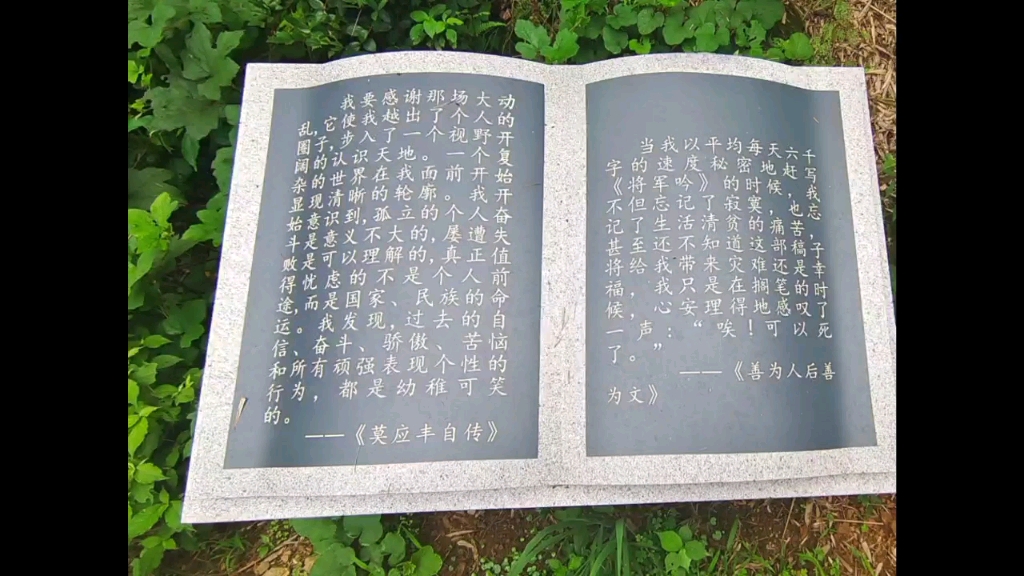 我要感谢那场大动
乱,它使我越出了个人的
圈子,步入了一个视野开
阔的认识天地。一个复
杂的世界在我面前开始
显现清晰的轮廓。我开
始意识到,孤立的个人奋
斗是意义不大的,屡遭失
败是可以理解的,真正值
得忧虑的不是个人前
途,而是国家、民族的命
运。我发现,过去的自
信、奋斗、骄傲、苦恼
和所有顽强表现个性的
行为,都是幼稚可笑
的。
——《莫应丰自传》
当我以平均每天六千
字的速度秘密地赶写
《将军吟》的时候,我
不但忘记了寂寞,也忘
记了生活清贫的痛苦,
甚至还不知道这部稿子
将给我带来灾难还是幸
福,我只是在搁笔的时
候,心安理得地感叹了
一声:“唉!可以死
了。”
——《善为人后善
为文》